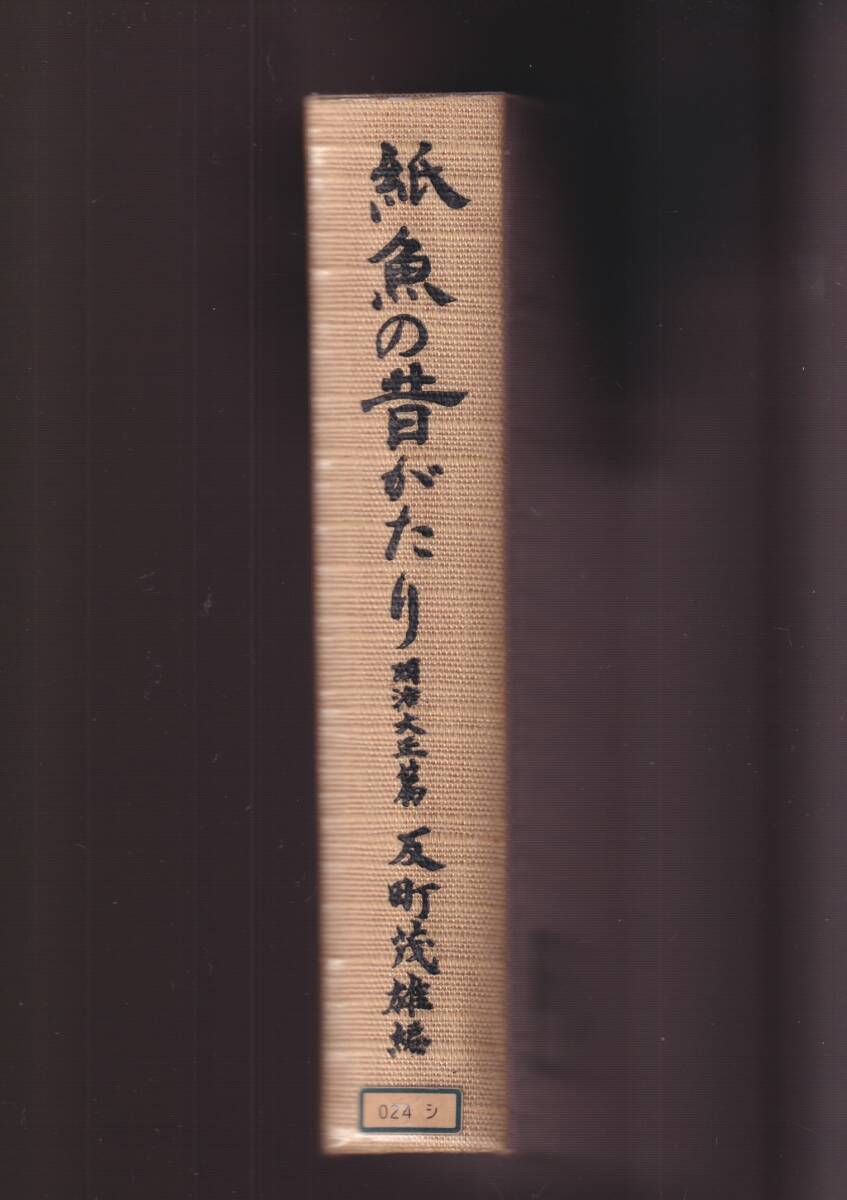 紙魚の昔がたり
明治大正篇
反町茂雄編
024 シ